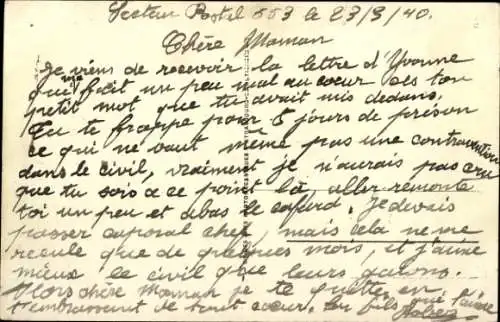 Secteur Postal 553 le 23/3/40.
Chère Maman
Je viens de recevoir la lettre d'Yvonne
qui m'a fait un peu mal au cœur des ton
petit mot que tu avait mis dedans.
Tu te frappe pour 5 jours de prison
ce qui ne vaut même pas une contravention
dans le civil, vraiment je n'aurais pas cru
que tu sois a ce point là, aller remonte
toi un peu et abas le cafard. Je devais
passer caporal chef, mais cela ne me
recule que de quelques mois, et j'aime
mieux le civil que leurs galons.
Alors chère Maman je te quitte en
t'embrassant de tout cœur. Ton fils qui t'aime